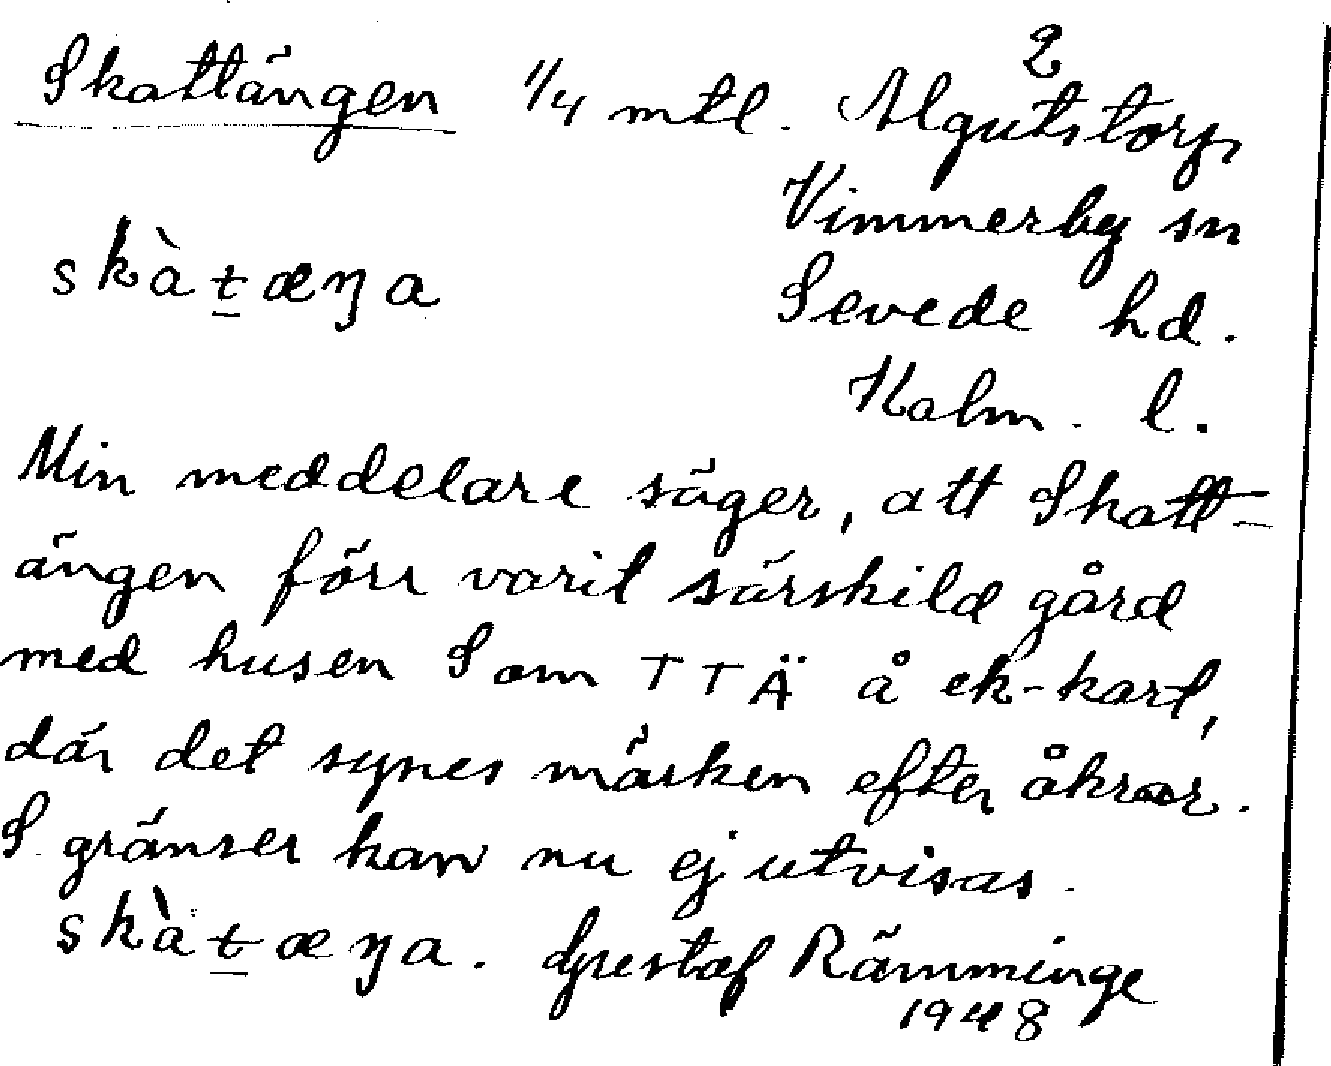 Skattängen 1/4 mtl. Algutstorp 2
Vimmerby sn
skàt̲æŋa
Sevede hd.
Kalm. l.
Min meddelare säger, att Skatt-
ängen förr varit särskild gård
med husen S om TTÄ å ek-kart,
där det synes märken efter åkrar.
S gränser kan nu ej utvisas.
skàt̲æŋa. Gustaf Rämminge
1948